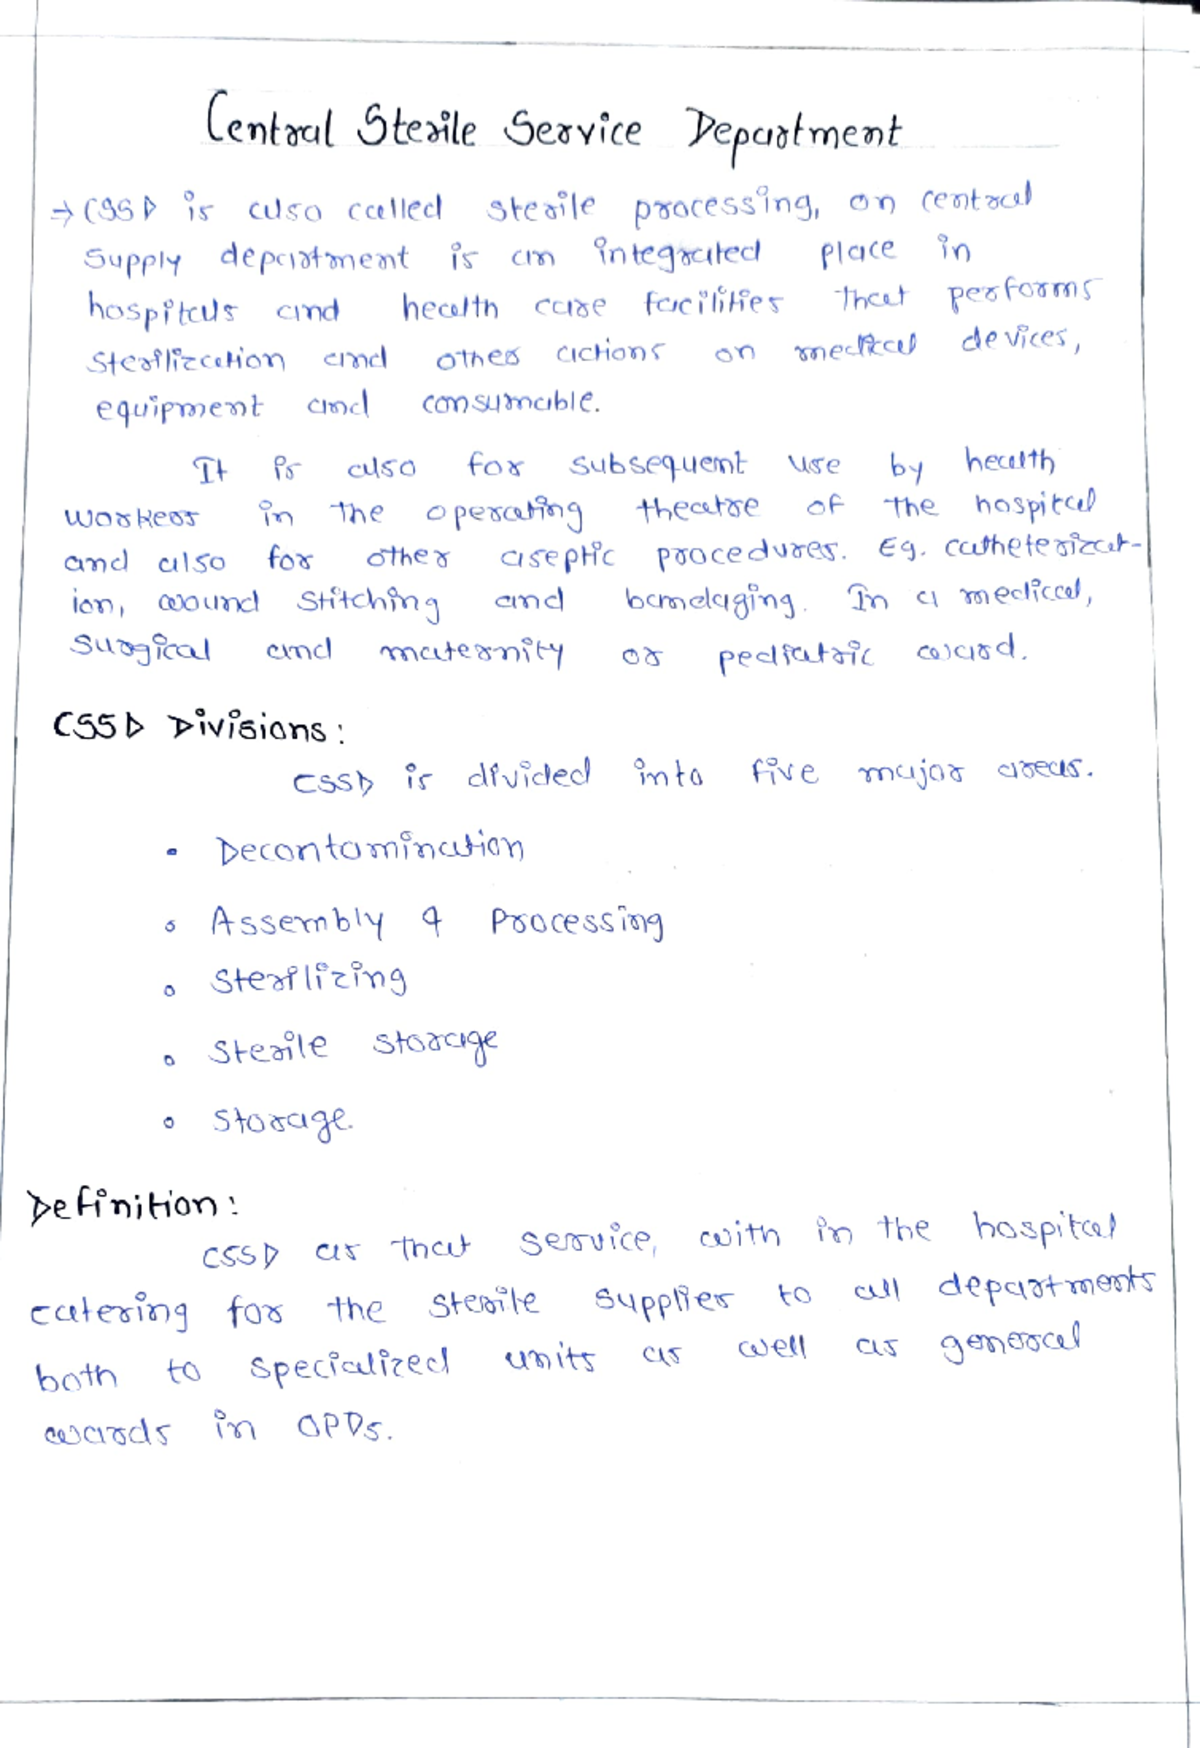 Central Sterile Service Department
→ CSSD is also called sterile processing, on central
supply department is an integrated place in
hospitals and health care facilities that performs
sterilization and other actions on medical devices,
equipment and consumable.
It is also for subsequent use by health
workers in the operating theatre of the hospital
and also for other aseptic procedures. Eg. catheterizat-
ion, wound stitching and bandaging. In a medical,
surgical and maternity or pediatric ward.
CSSD Divisions:
CSSD is divided into five major areas.
• Decontamination
• Assembly & Processing
• Sterilizing
• Sterile storage
• Storage.
Definition:
CSSD as that service, with in the hospital
catering for the sterile supplies to all departments
both to specialized units as well as general
wards in OPDs.